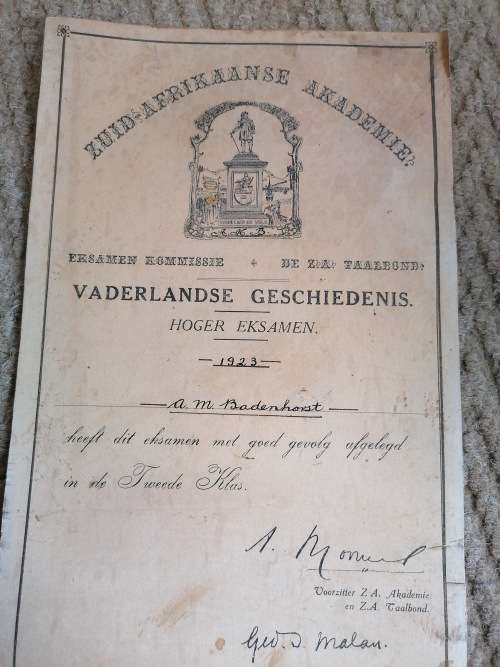 ZUID-AFRIKAANSE AKADEMIE.
A. K. B.
EKSAMEN KOMMISSIE + DE Z.A. TAALBOND.
VADERLANDSE GESCHIEDENIS.
HOGER EKSAMEN.
— 1923 —
— A. M. Badenhorst —
heeft dit eksamen met goed gevolg afgelegd
in de Tweede Klas.
Voorzitter Z.A. Akademie
en Z.A. Taalbond.
Malan.